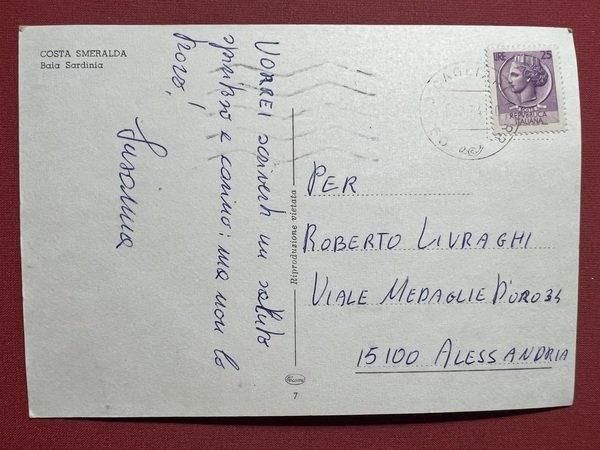 COSTA SMERALDA
Baia Sardinia
VORREI scriverti un saluto
spiritoso e carino: ma non lo
Susanna
Riproduzione vietata
7
LIRE 25
POSTE
REPVBBLICA
ITALIANA
PER
ROBERTO LIVRAGHI
VIALE MEDAGLIE D'ORO 34
15100 ALESSANDRIA